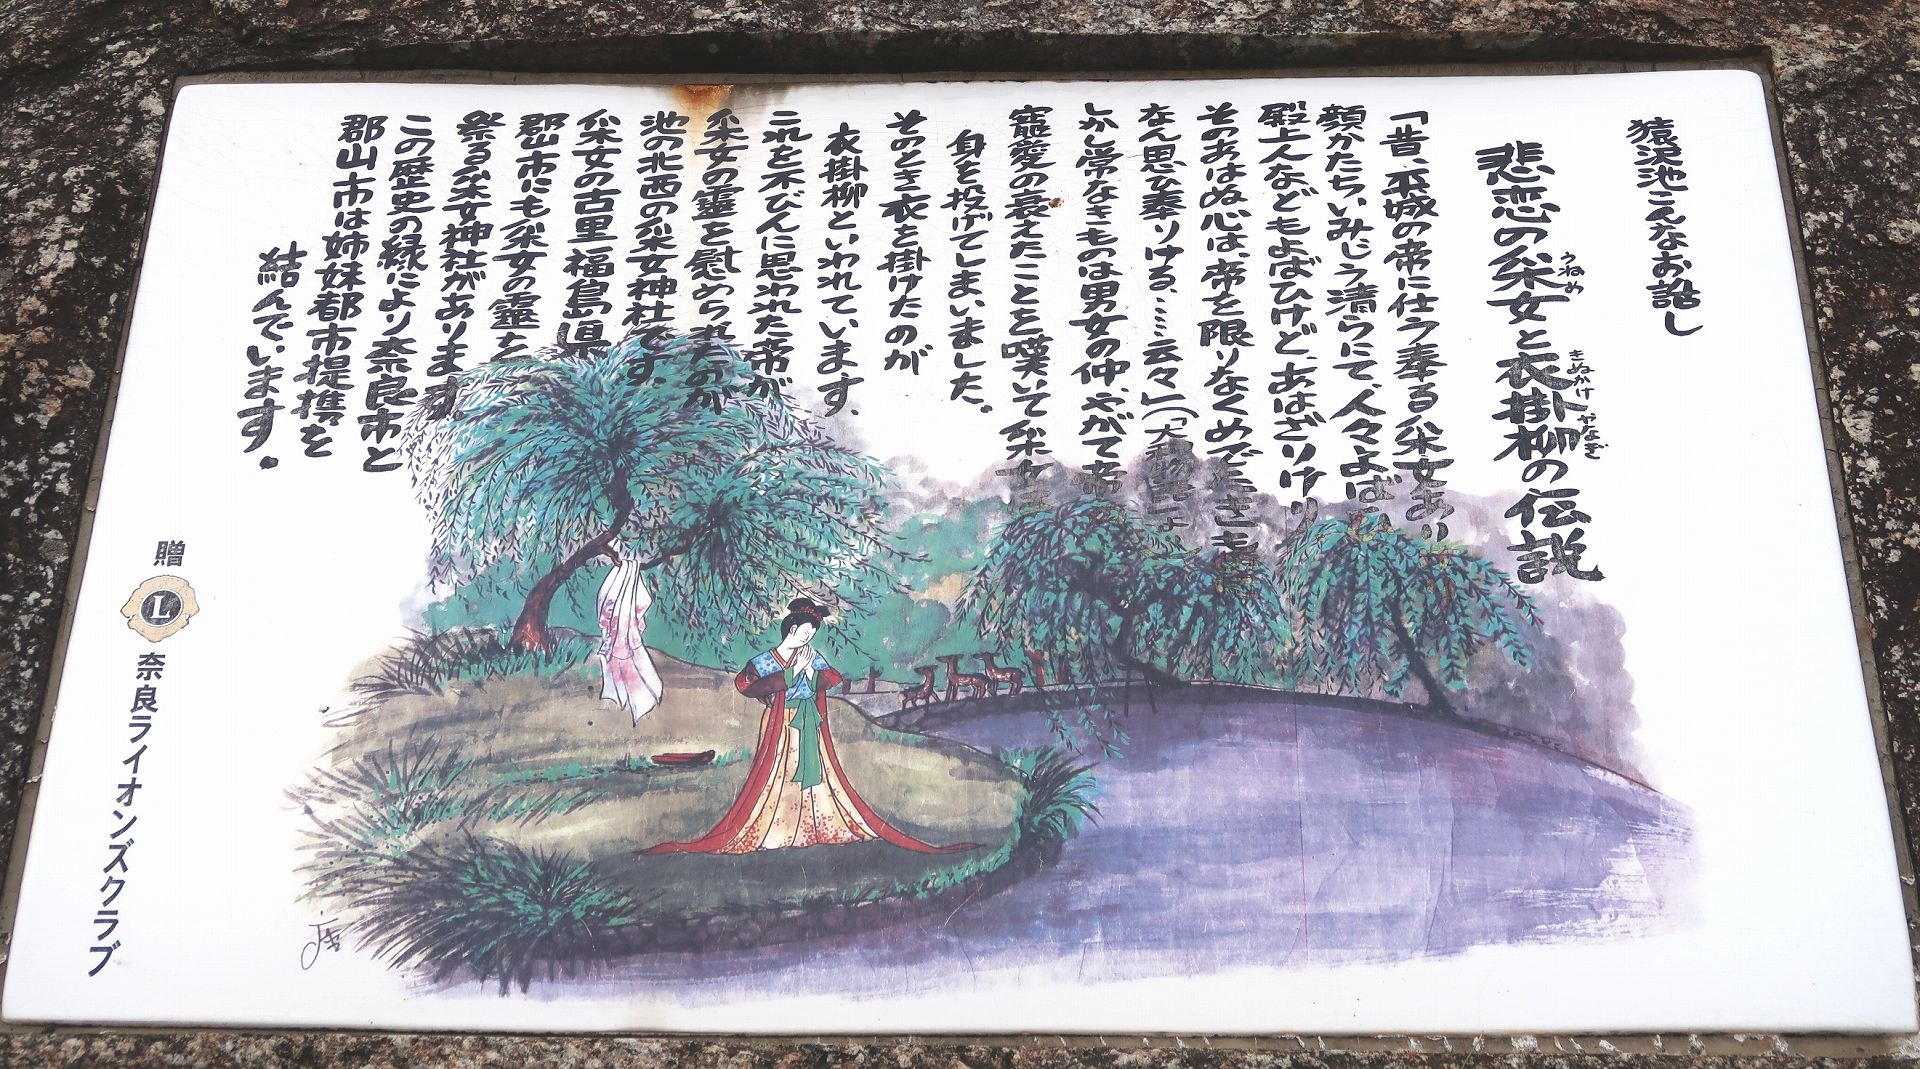 猿沢池こんなお話し
悲恋の采女と衣掛柳の伝説
うねめ
きぬかけ やなぎ
「昔、平城の帝に仕う奉る采女あり
顔かたちいみじう清らにて、人々よば
殿上人などもよばひけど、あはざりけり
そのあはぬ心は、帝を限りなくめでたきも
なん思ひ奉りける、……云々」(「大和物語」
しかし常なきものは男女の仲、やがて帝
寵愛の衰えたことを嘆いて采女
身を投げてしまいました。
そのとき衣を掛けたのが
衣掛柳といわれています、
これを不びんに思われた帝が
采女の霊を慰められたのが
池の北西の采女神社です。
采女の古里福島県
郡山市にも采女の霊を
祭る采女神社があります。
この歴史の縁により奈良市と
郡山市は姉妹都市提携を
結んでいます。
贈
L
奈良ライオンズクラブ